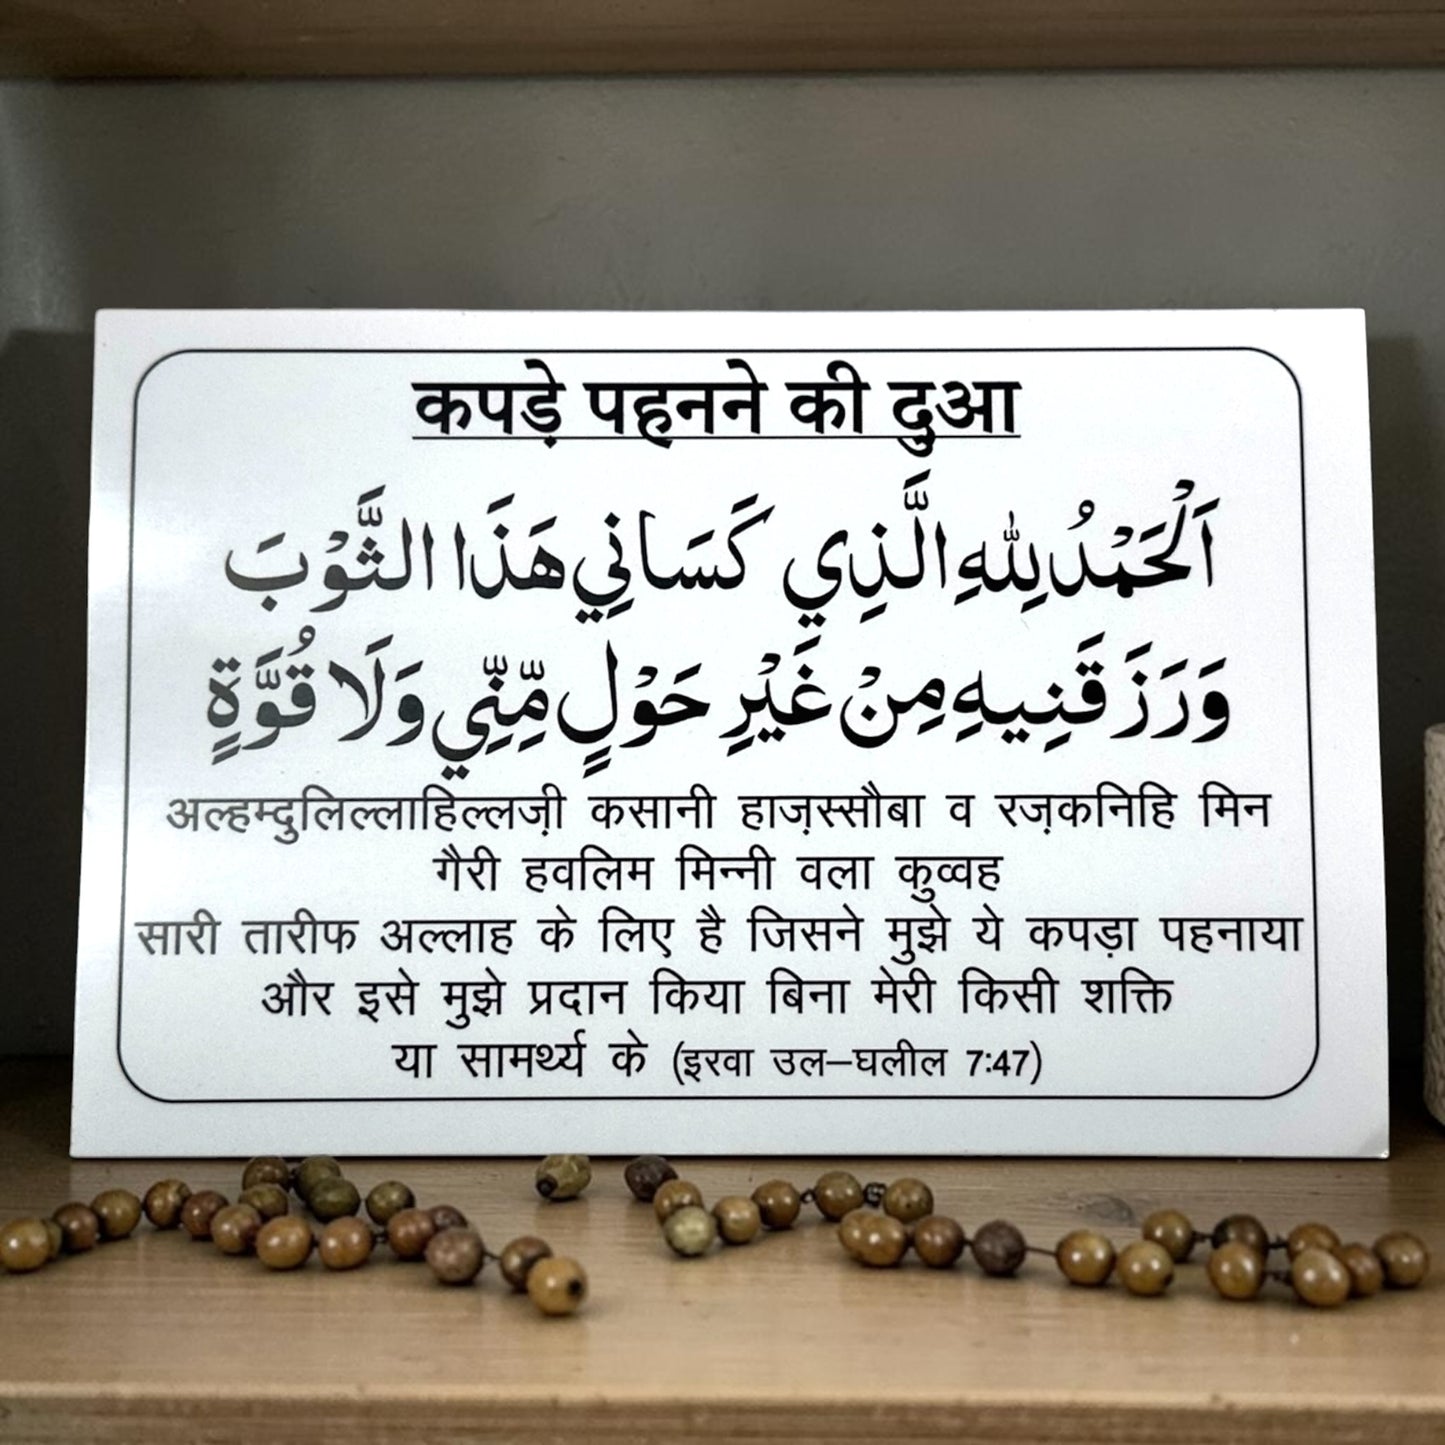 कपड़े पहनने की दुआ
اَلْحَمْدُ لِلّٰهِ الَّذِي كَسَانِي هَذَا الثَّوْبَ
وَرَزَقَنِيهِ مِنْ غَيْرِ حَوْلٍ مِّنِّي وَلَا قُوَّةٍ
अल्हम्दुलिल्लाहिल्लज़ी कसानी हाज़स्सौबा व रज़कनिहि मिन
गैरी हवलिम मिन्नी वला कुव्वह
सारी तारीफ अल्लाह के लिए है जिसने मुझे ये कपड़ा पहनाया
और इसे मुझे प्रदान किया बिना मेरी किसी शक्ति
या सामर्थ्य के (इरवा उल–घलील 7:47)